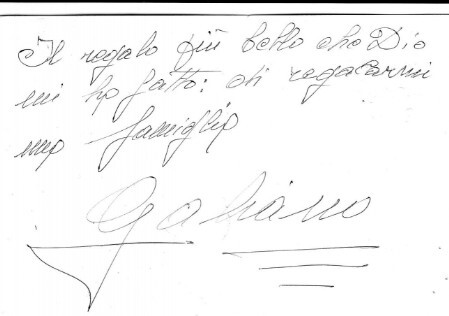 Il regalo più bello che Dio
mi ha fatto: di regalarmi
una famiglia
Gabiano